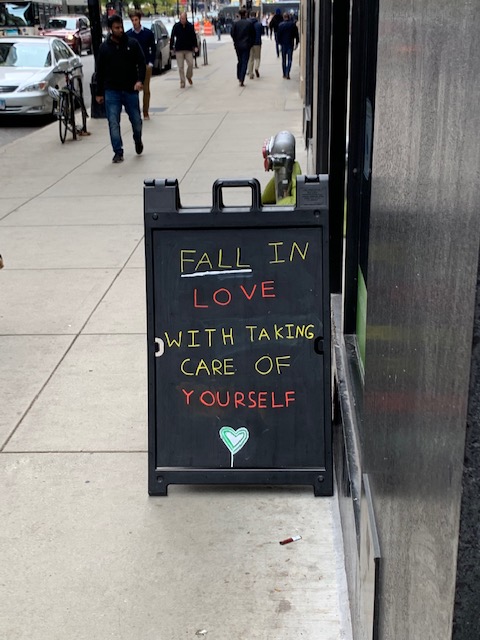 FALL IN
LOVE
WITH TAKING
CARE OF
YOURSELF